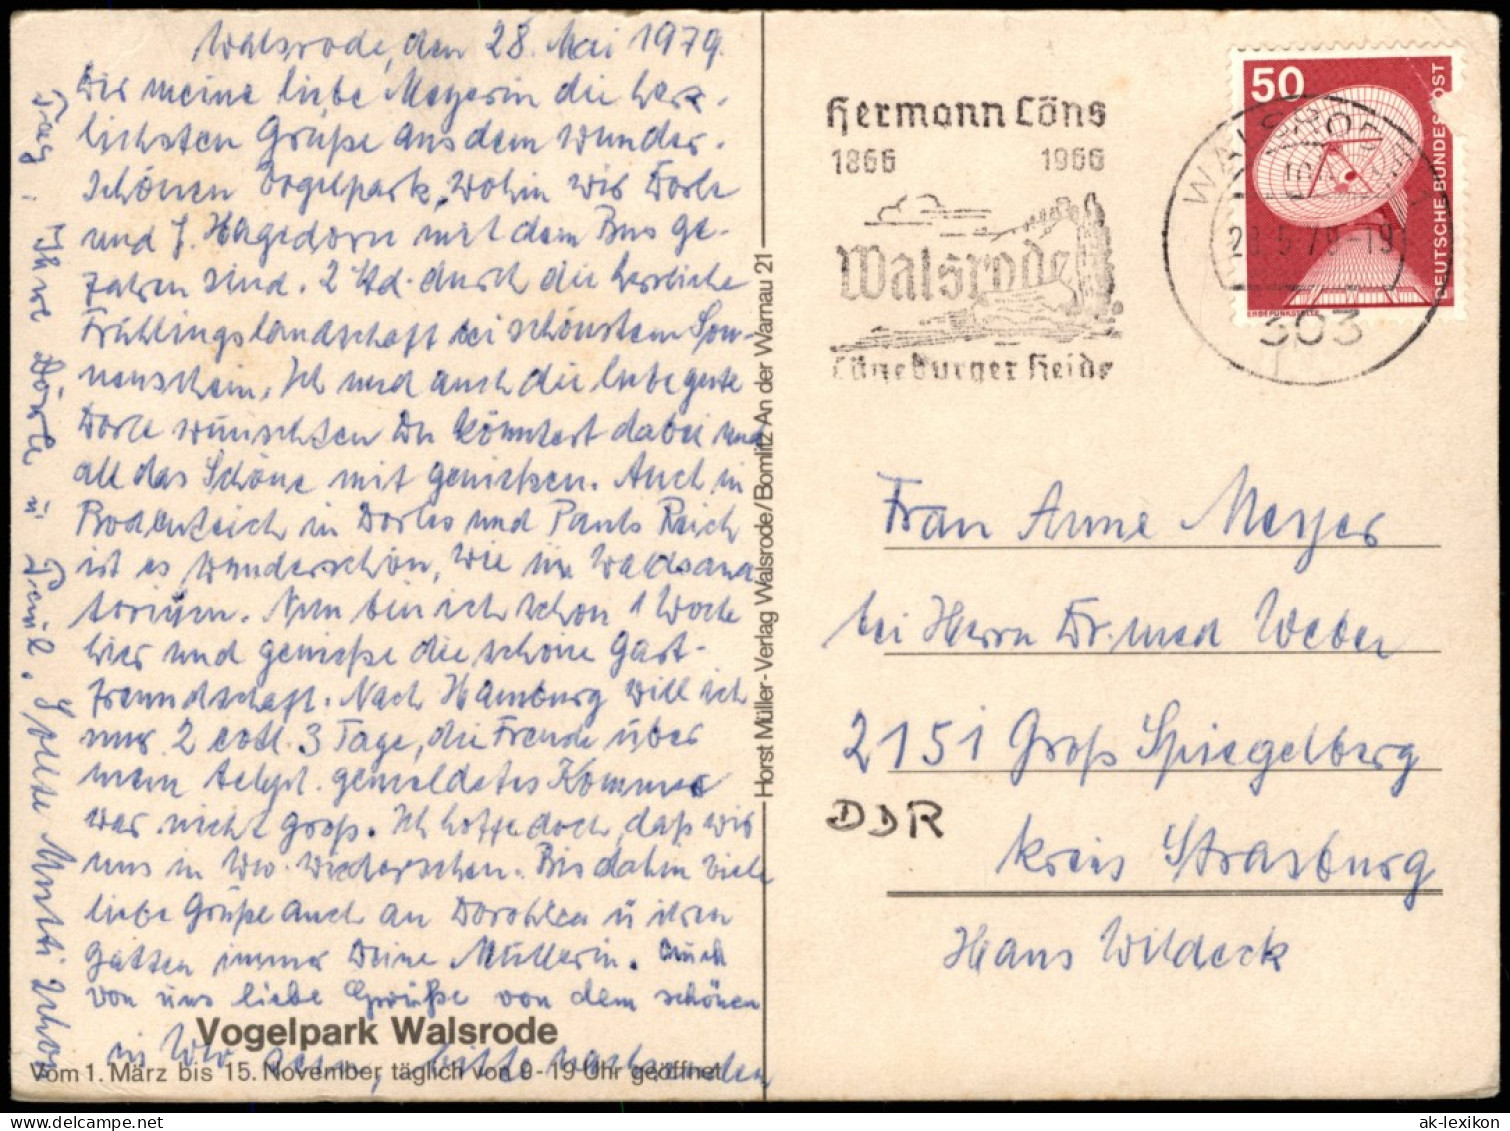 Walsrode, den 28. Mai 1979.
Dir meine liebe Meyerin die herz-
lichsten Grüße aus dem wunder-
schönen Vogelpark, wohin wir Dorle
und J. Hagedorn mit dem Bus ge-
fahren sind. 2 Std. durch die herrliche
Frühlingslandschaft bei schönstem Son-
nenschein. Ich und auch die liebe gute
Dorle wünschten Du könntest dabei und
all das Schöne mit genießen. Auch in
Bodenteich in Dorles und Pauls Reich
ist es wunderschön, wie im Waldsana
torium. Nun bin ich schon 1 Woche
hier und genieße die schöne Gast-
freundschaft. Nach Hamburg will ich
nur 2 evtl. 3 Tage, die Freude über
mein telepf. gemeldetes Kommen
war nicht groß. Ich hoffe doch, daß wir
uns in Ww. wiedersehen. Bis dahin viele
liebe Grüße auch an Dorohlea u ihren
Gatten immer Deine Müllerin. Auch
von uns liebe Grüße von dem schönen
Ihre Dorle u.
Sollte Mutti schon
in Ww sein, bitte nachsenden
Vogelpark Walsrode
Vom 1. März bis 15. November täglich von 9-19 Uhr geöffnet
Horst Müller-Verlag Walsrode/Bomlitz An der Warnau 21
Hermann Löns
1866 1966
Walsrode
Lüneburger Heide
50
DEUTSCHE BUNDESPOST
ERDEFUNKSTELLE
WALSRODE 1
303
Frau Anne Meyer
bei Herrn Dr. med Weber
2151 Groß Spiegelberg
DDR
Kreis Strasburg
Hans Wildeck
ak-lexikon